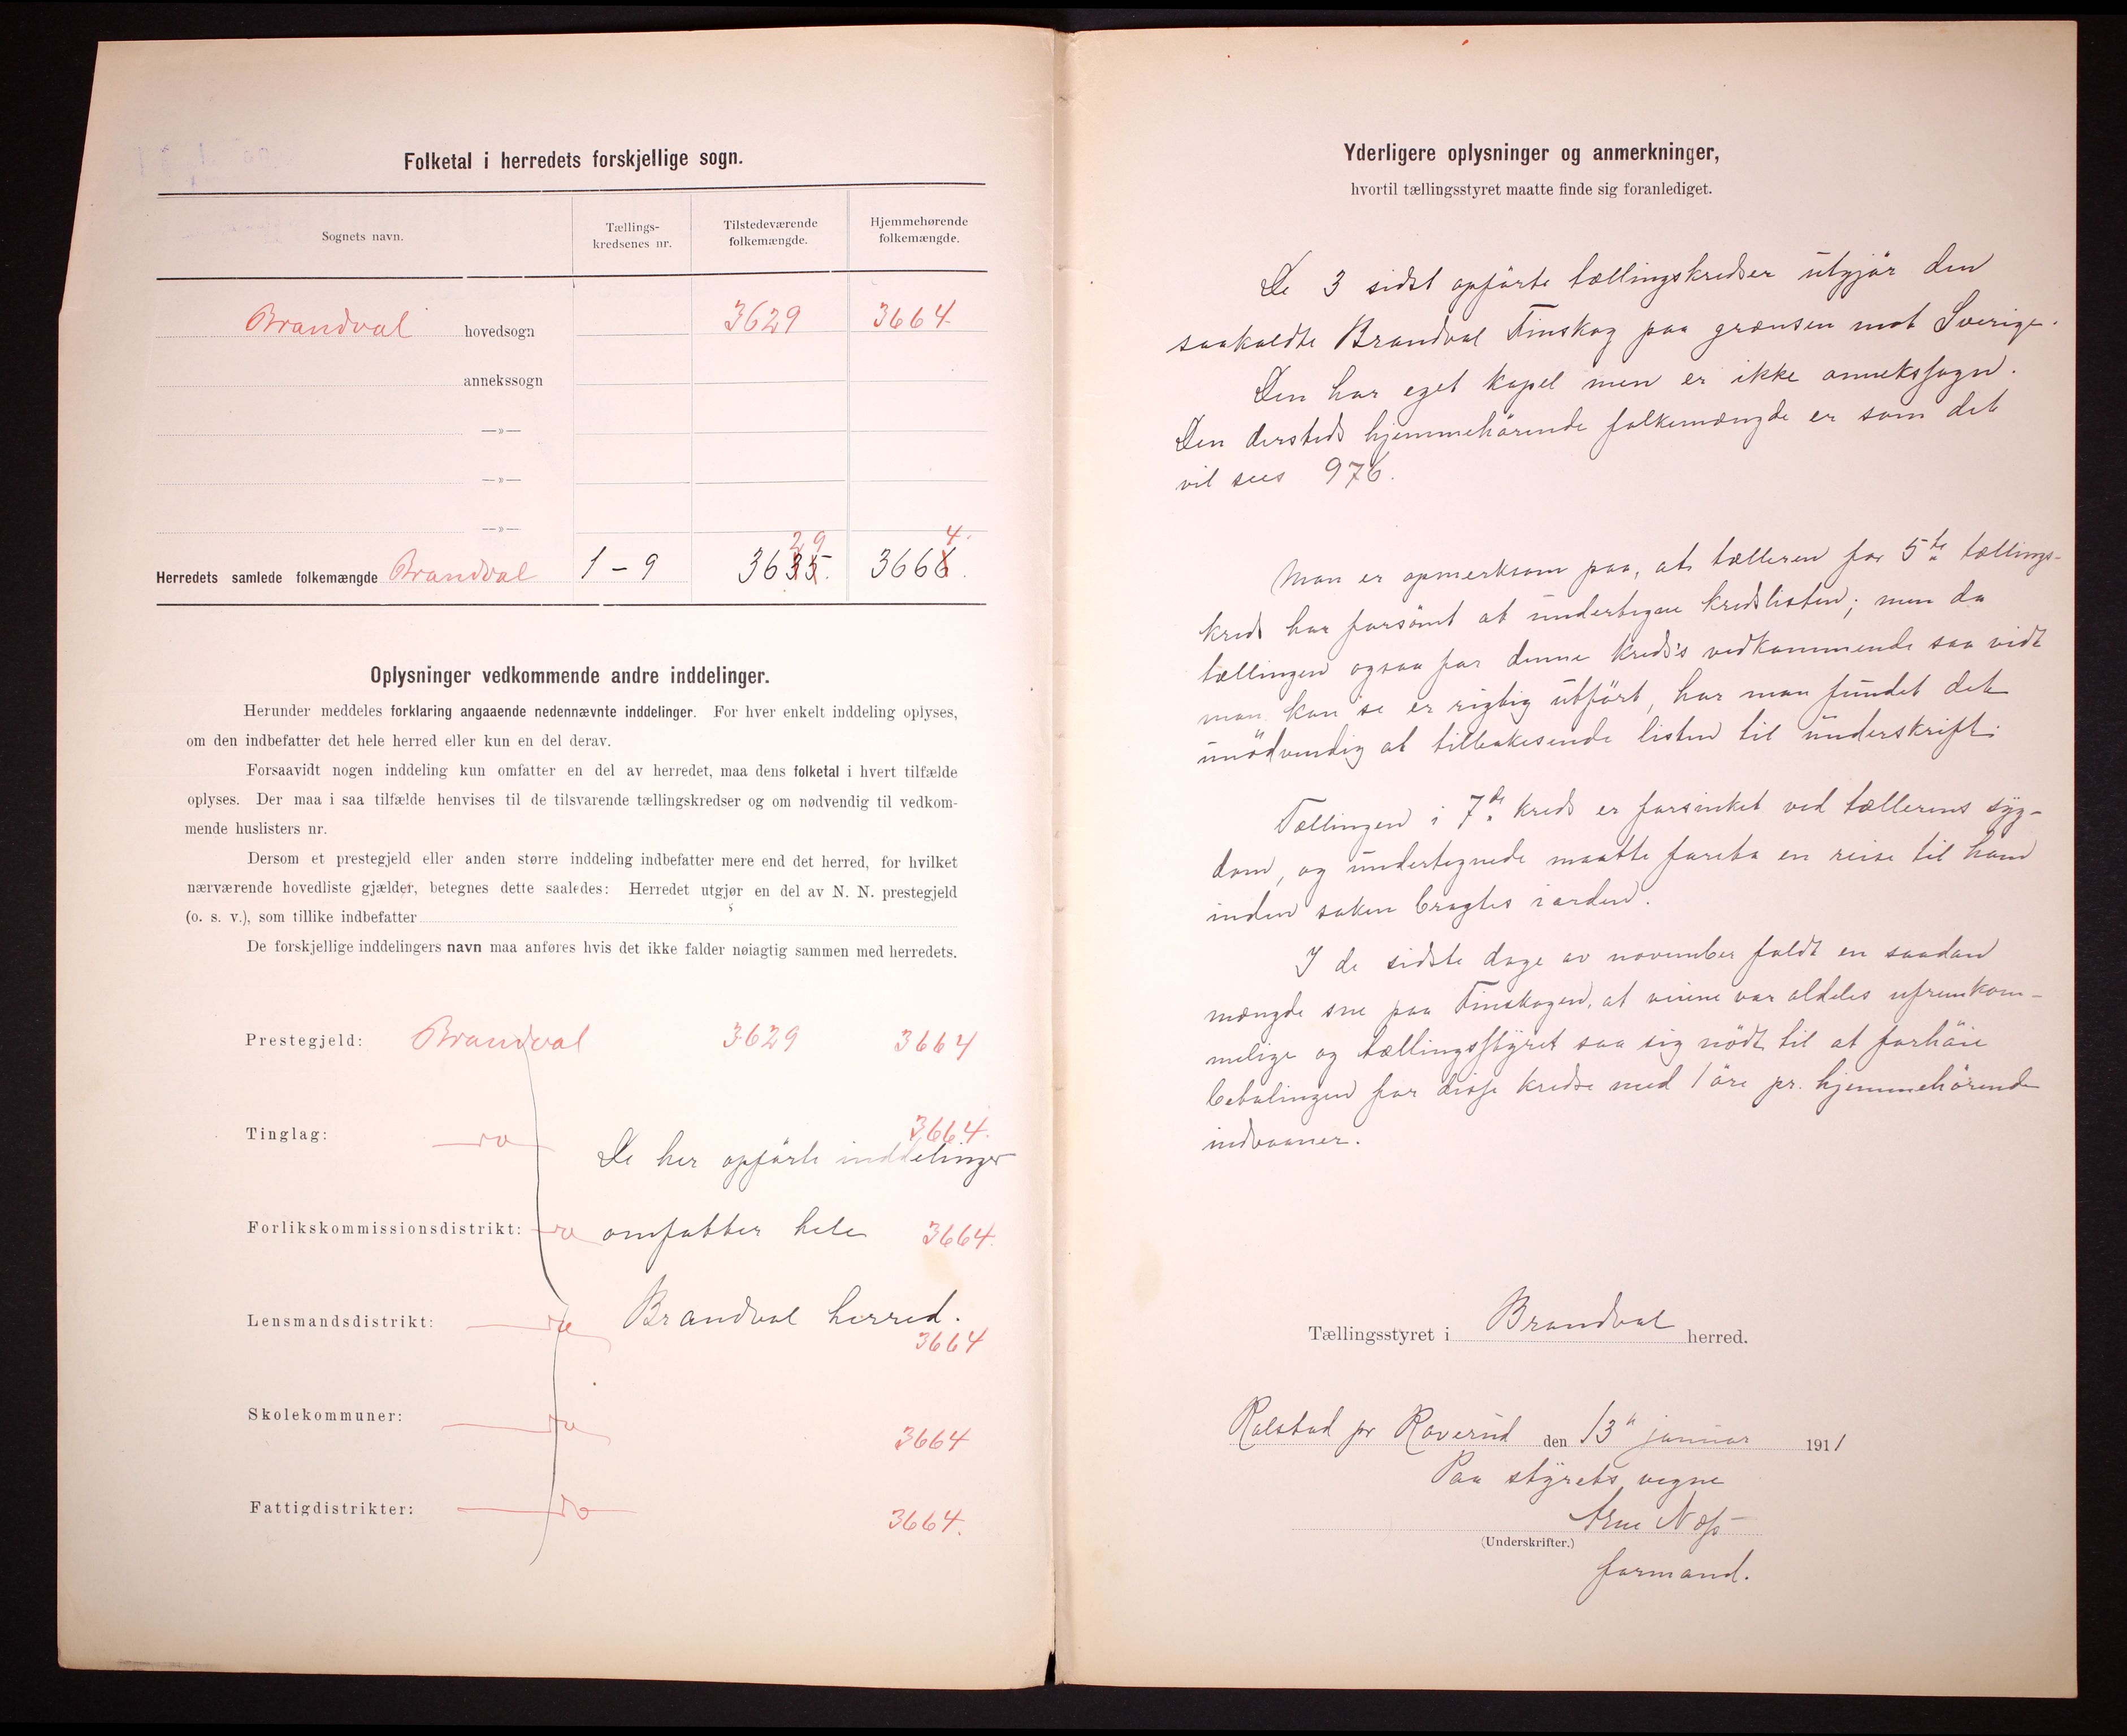 Folketal i herredets forskjellige sogn.
Sognets navn. Tællings-kredsenes nr. Tilstedeværende folkemængde. Hjemmehørende folkemængde.
Brandval hovedsogn 3629 3664
annekssogn
—»—
—»—
—»—
29 4.
Herredets samlede folkemængde Brandval 1 – 9 3635. 3666.
Oplysninger vedkommende andre inddelinger.
Herunder meddeles forklaring angaaende nedennævnte inddelinger. For hver enkelt inddeling oplyses,
om den indbefatter det hele herred eller kun en del derav.
Forsaavidt nogen inddeling kun omfatter en del av herredet, maa dens folketal i hvert tilfælde
oplyses. Der maa i saa tilfælde henvises til de tilsvarende tællingskredser og om nødvendig til vedkom-
mende huslisters nr.
Dersom et prestegjeld eller anden større inddeling indbefatter mere end det herred, for hvilket
nærværende hovedliste gjælder, betegnes dette saaledes: Herredet utgjør en del av N. N. prestegjeld
(o. s. v.), som tillike indbefatter
De forskjellige inddelingers navn maa anføres hvis det ikke falder nøiagtig sammen med herredets.
Prestegjeld: Brandval 3629 3664
Tinglag: do 3664.
De her opførte inddelinger
Forlikskommissionsdistrikt: do omfatter hele 3664.
Lensmandsdistrikt: do Brandval herred.
3664
Skolekommuner: do 3664
Fattigdistrikter: do 3664.
Yderligere oplysninger og anmerkninger,
hvortil tællingsstyret maatte finde sig foranlediget.
De 3 sidst opførte tællingskredser utgjør den
saakaldte Brandval Finskog paa grænsen mot Sverige.
Den har eget kapel men er ikke annekssogn.
Den dersteds hjemmehørende folkemængde er som det
vil sees 976.
Man er opmerksom paa, at tælleren for 5te tællings-
kreds har forsømt at undertegne kredslisten; men da
tællingen ogsaa for denne kreds's vedkommende saa vidt
man kan se er rigtig utført, har man fundet det
unødvendig at tilbakesende listen til underskrift.
Tællingen i 7de kreds er forsinket ved tællerens syg-
dom, og undertegnede maatte foreta en reise til ham
inden saken bragtes i orden.
I de sidste dage av november faldt en saadan
mængde sne paa Finskogen, at veiene var aldeles ufremkom-
melige og tællingsstyret saa sig nødt til at forhøie
betalingen for disse kredse med 1 øre pr. hjemmehørende
indvaaner.
Tællingsstyret i Brandval herred.
Rolstad pr Roverud den 13de januar 1911
Paa styrets vegne
Arne Næss
(Underskrifter.)
formand.